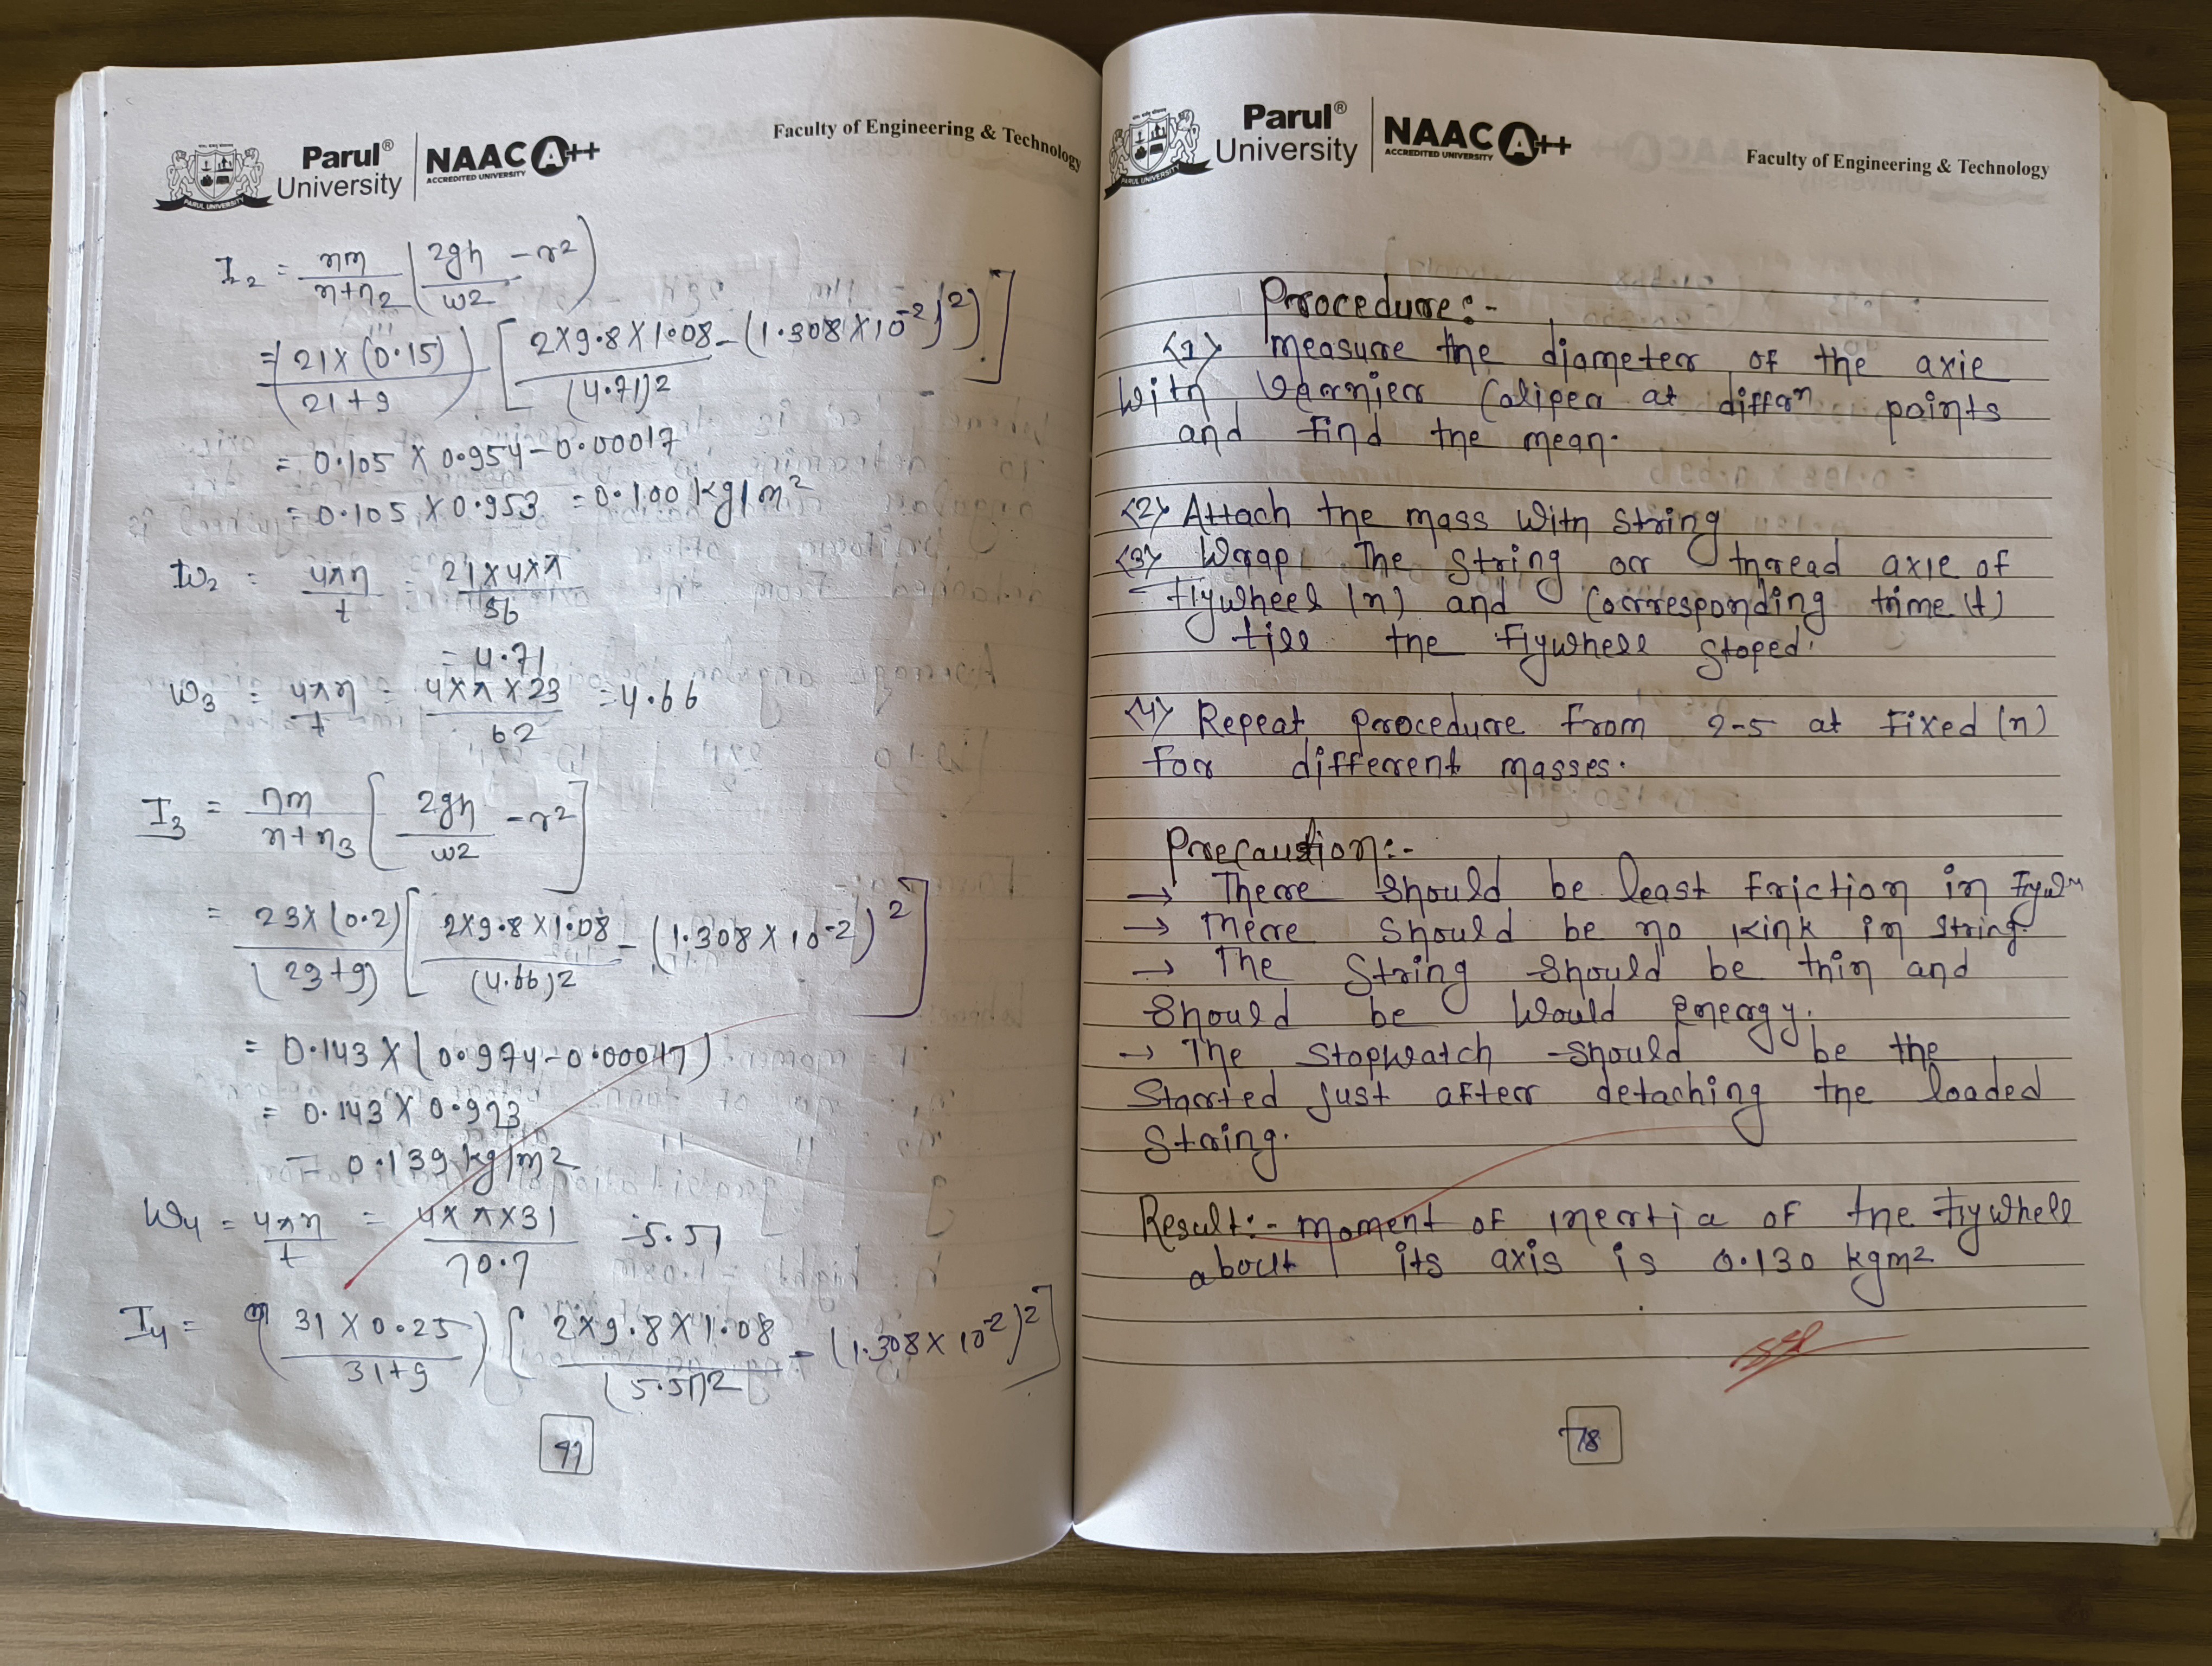 Parul®
University
NAAC A++
ACCREDITED UNIVERSITY
PARUL UNIVERSITY
Faculty of Engineering & Technology
I2 = nm/n+n2 (2gh/w2 - r2)
= (21×(0.15)/21+9) [2×9.8×1.08/(4.71)2 - (1.308×10-2)2)]
= 0.105 × 0.954 - 0.00017
= 0.105 × 0.953 = 0.100 kg/m2
W2 = 4πn/t = 21×4×π/56
= 4.71
W3 = 4πn/t = 4×π×23/62 = 4.66
I3 = nm/n+n3 [2gh/w2 - r2]
= 23×(0.2)/(23+9) [2×9.8×1.08/(4.66)2 - (1.308×10-2)2]
= 0.143 × (0.974 - 0.00017)
= 0.143 × 0.973
= 0.139 kg/m2
W4 = 4πn/t = 4×π×31/70.7 = 5.51
I4 = (31×0.25/31+9) [2×9.8×1.08/(5.51)2 - (1.308×10-2)2]
77
Parul®
University
NAAC A++
ACCREDITED UNIVERSITY
PARUL UNIVERSITY
Faculty of Engineering & Technology
Procedure:-
<1> measure the diameter of the axie
with Vernier Caliper at differn points
and find the mean.
<2> Attach the mass with string
<3> Wrap the string or thread axie of
flywheel (n) and corresponding time (t)
till the flywhell stoped.
<4> Repeat procedure from 2-5 at fixed (n)
for different masses.
Precaution:-
→ There should be least friction in
→ There should be no kink in string.
→ The string should be thin and
should be would energy.
→ The stopwatch should be the
started just after detaching the loaded
string.
Result:- moment of inertia of the flywhell
about its axis is 0.130 kgm2
78